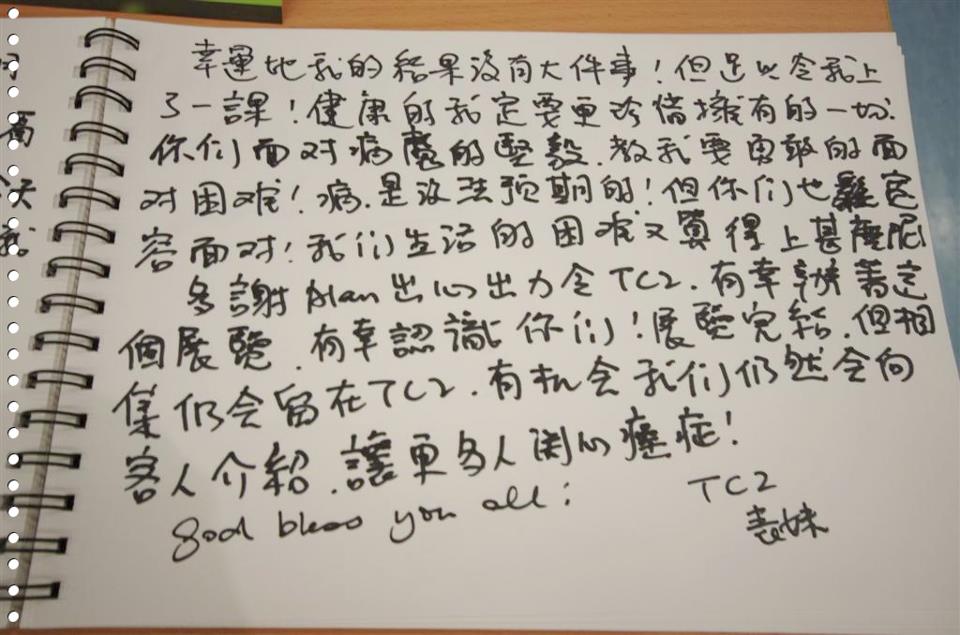 幸運地我的結果没有大件事！但足以令我上
了一課！健康的我定要更珍惜擁有的一切.
你们面对病魔的堅毅.教我要勇敢的面
对困难！病.是没法预期的！但你们也能從
容面对！我们生活的困难又算得上甚麼呢
多謝Alan出心出力令TC2.有幸辦著這
個展覽.有幸認識你们！展覽完結.但相
集仍会留在TC2.有机会我们仍然会向
客人介紹.讓更多人関心癌症！
God bless you all!
TC2
表妹